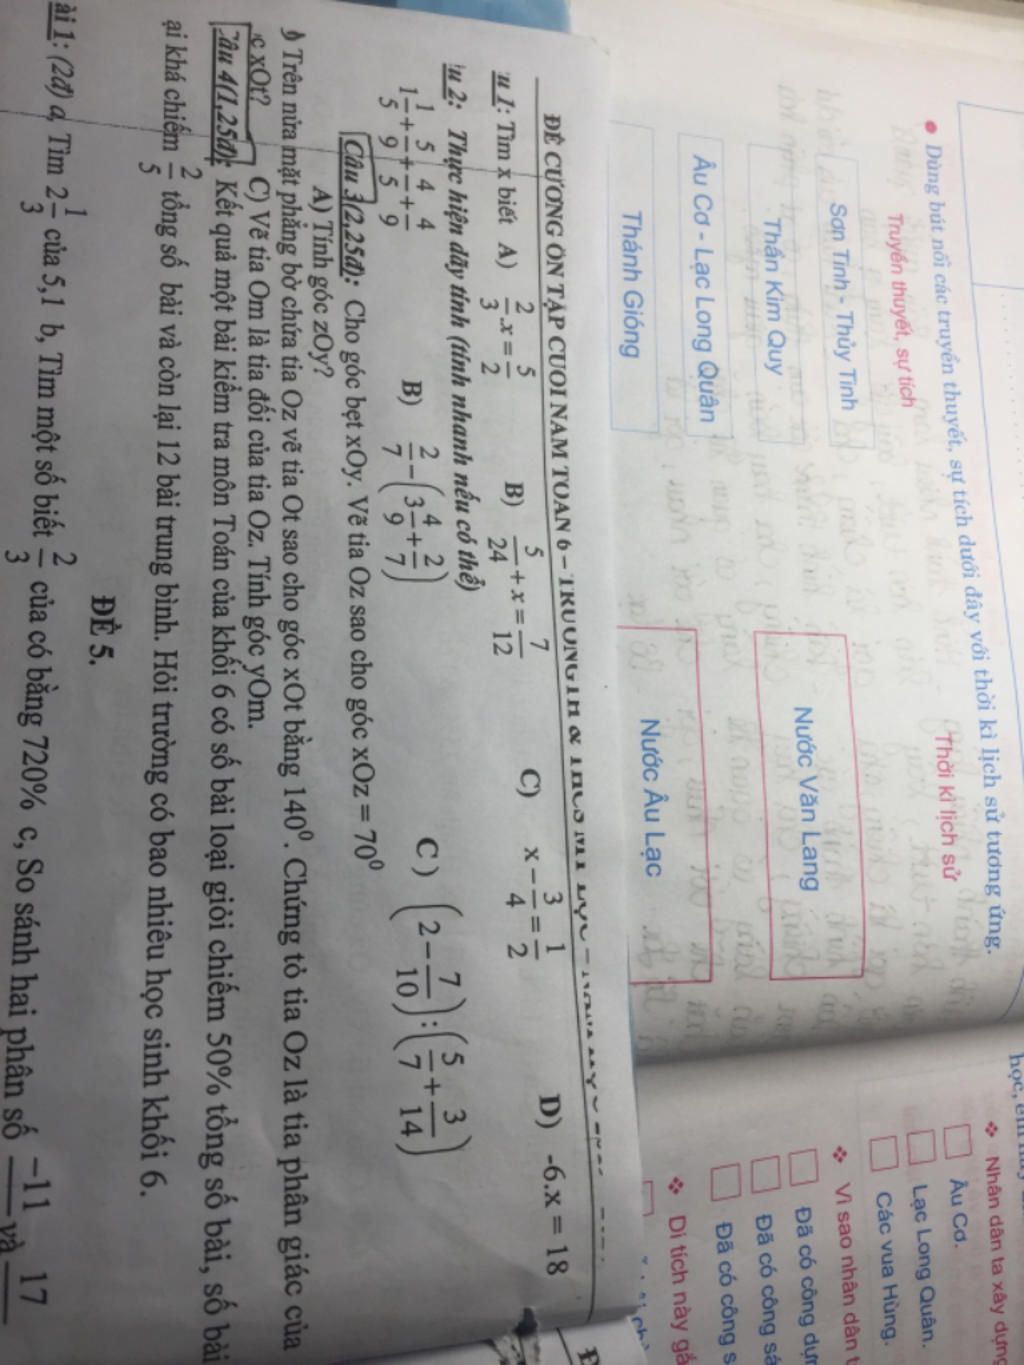 • Dùng bút nối các truyền thuyết, sự tích dưới đây với thời kì lịch sử tương ứng.
Truyền thuyết, sự tích
Thời kì lịch sử
Sơn Tinh - Thủy Tinh
Thần Kim Quy
Nước Văn Lang
Âu Cơ - Lạc Long Quân
Thánh Gióng
Nước Âu Lạc
❖ Nhân dân ta xây dựng
Âu Cơ.
Lạc Long Quân.
Các vua Hùng.
❖ Vì sao nhân dân t
Đã có công dựn
Đã có công sá
Đã có công s
❖ Di tích này gắ
ĐỀ CƯƠNG ÔN TẬP CUOI NAM TOAN 6 – TRUONG TH & THCS
u 1: Tìm x biết A) 2/3 .x = 5/2 B) 5/24 + x = 7/12 C) x − 3/4 = 1/2 D) -6.x = 18
u 2: Thực hiện dãy tính (tính nhanh nếu có thể)
1 1/5 + 5/9 + 4/5 + 4/9 B) 2/7 − (3 4/9 + 2/7) C) (2 − 7/10) : (5/7 + 3/14)
Câu 3(2,25đ): Cho góc bẹt xOy. Vẽ tia Oz sao cho góc xOz = 70⁰
A) Tính góc zOy?
Trên nửa mặt phẳng bờ chứa tia Oz vẽ tia Ot sao cho góc xOt bằng 140⁰. Chứng tỏ tia Oz là tia phân giác của
c xOt? C) Vẽ tia Om là tia đối của tia Oz. Tính góc yOm.
Câu 4(1,25đ): Kết quả một bài kiểm tra môn Toán của khối 6 có số bài loại giỏi chiếm 50% tổng số bài, số bài
ại khá chiếm 2/5 tổng số bài và còn lại 12 bài trung bình. Hỏi trường có bao nhiêu học sinh khối 6.
ĐỀ 5.
ài 1: (2đ) a, Tìm 2 1/3 của 5,1 b, Tìm một số biết 2/3 của có bằng 720% c, So sánh hai phân số −11 và 17